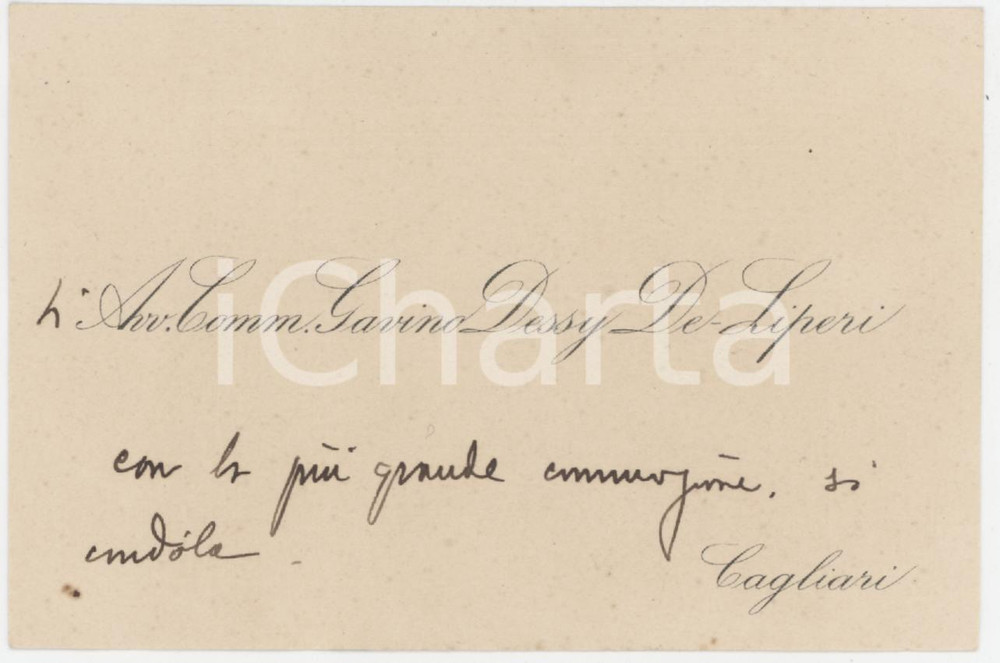 L' Avv. Comm. Gavino Dessy De-Liperi
iCharta
con la più grande commozione, si
condóla
Cagliari